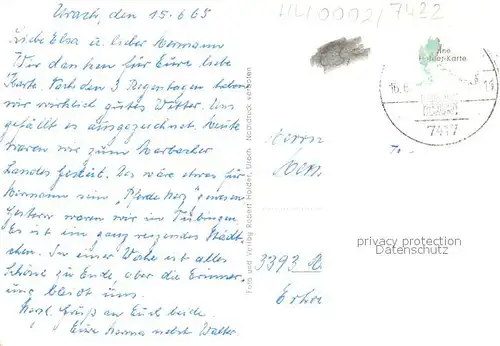 Urach, den 15.6.65
Liebe Elsa u. lieber Hermann
Wir danken für Eure liebe
Karte. Nach den 3 Regentagen haben
wir wirklich gutes Wetter. Uns
gefällt es ausgezeichnet. Heute
waren wir zum Marbacher
Landes Gestüt. Das wäre etwas für
Hermann sein "Pferde Herz" gewesen
Gestern waren wir in Tübingen
Es ist ein ganz reizendes Städt
chen. In einer Woche ist alles
Schöne zu Ende aber die Erinner
ung bleibt uns.
Herzl. Grüße an Euch beide.
Eure Herma nebst Walter.
Foto und Verlag Robert Holder, Urach Nachdruck verboten
4410002/7422
Eine
Holder-Karte
16.6.
11
7417
Herrn
3393
Erho
privacy protection
Datenschutz